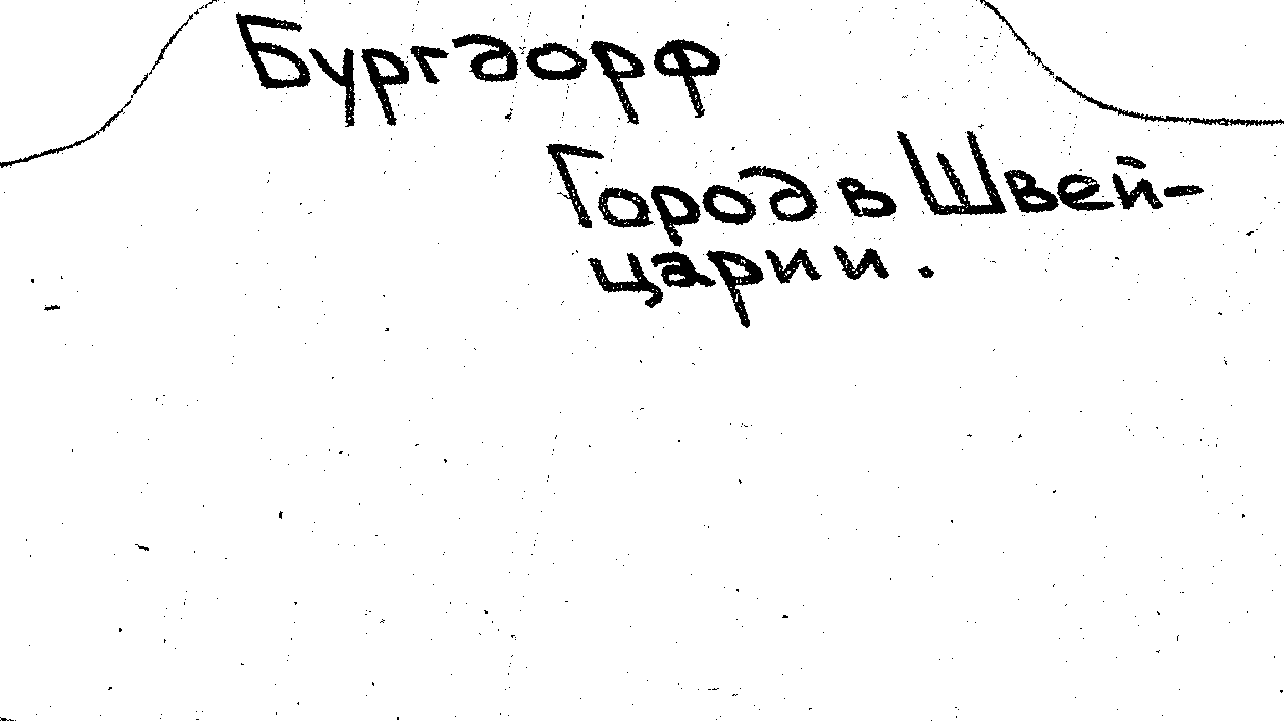 Бургдорф
Город в Швей-
царии.